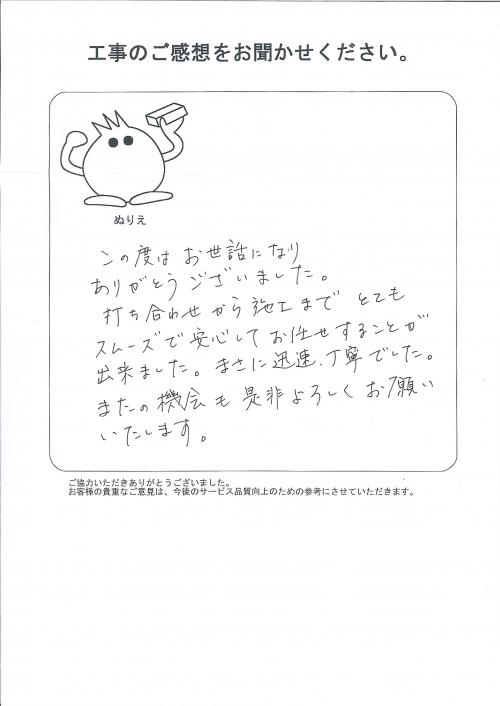 工事のご感想をお聞かせください。
ぬりえ
この度は お世話になり
ありがとうございました。
打ち合わせから施工まで とても
スムーズで安心してお任せすることが
出来ました。まさに迅速、丁寧でした。
またの機会も是非よろしくお願い
いたします。
ご協力いただきありがとうございました。
お客様の貴重なご意見は、今後のサービス品質向上のための参考にさせていただきます。